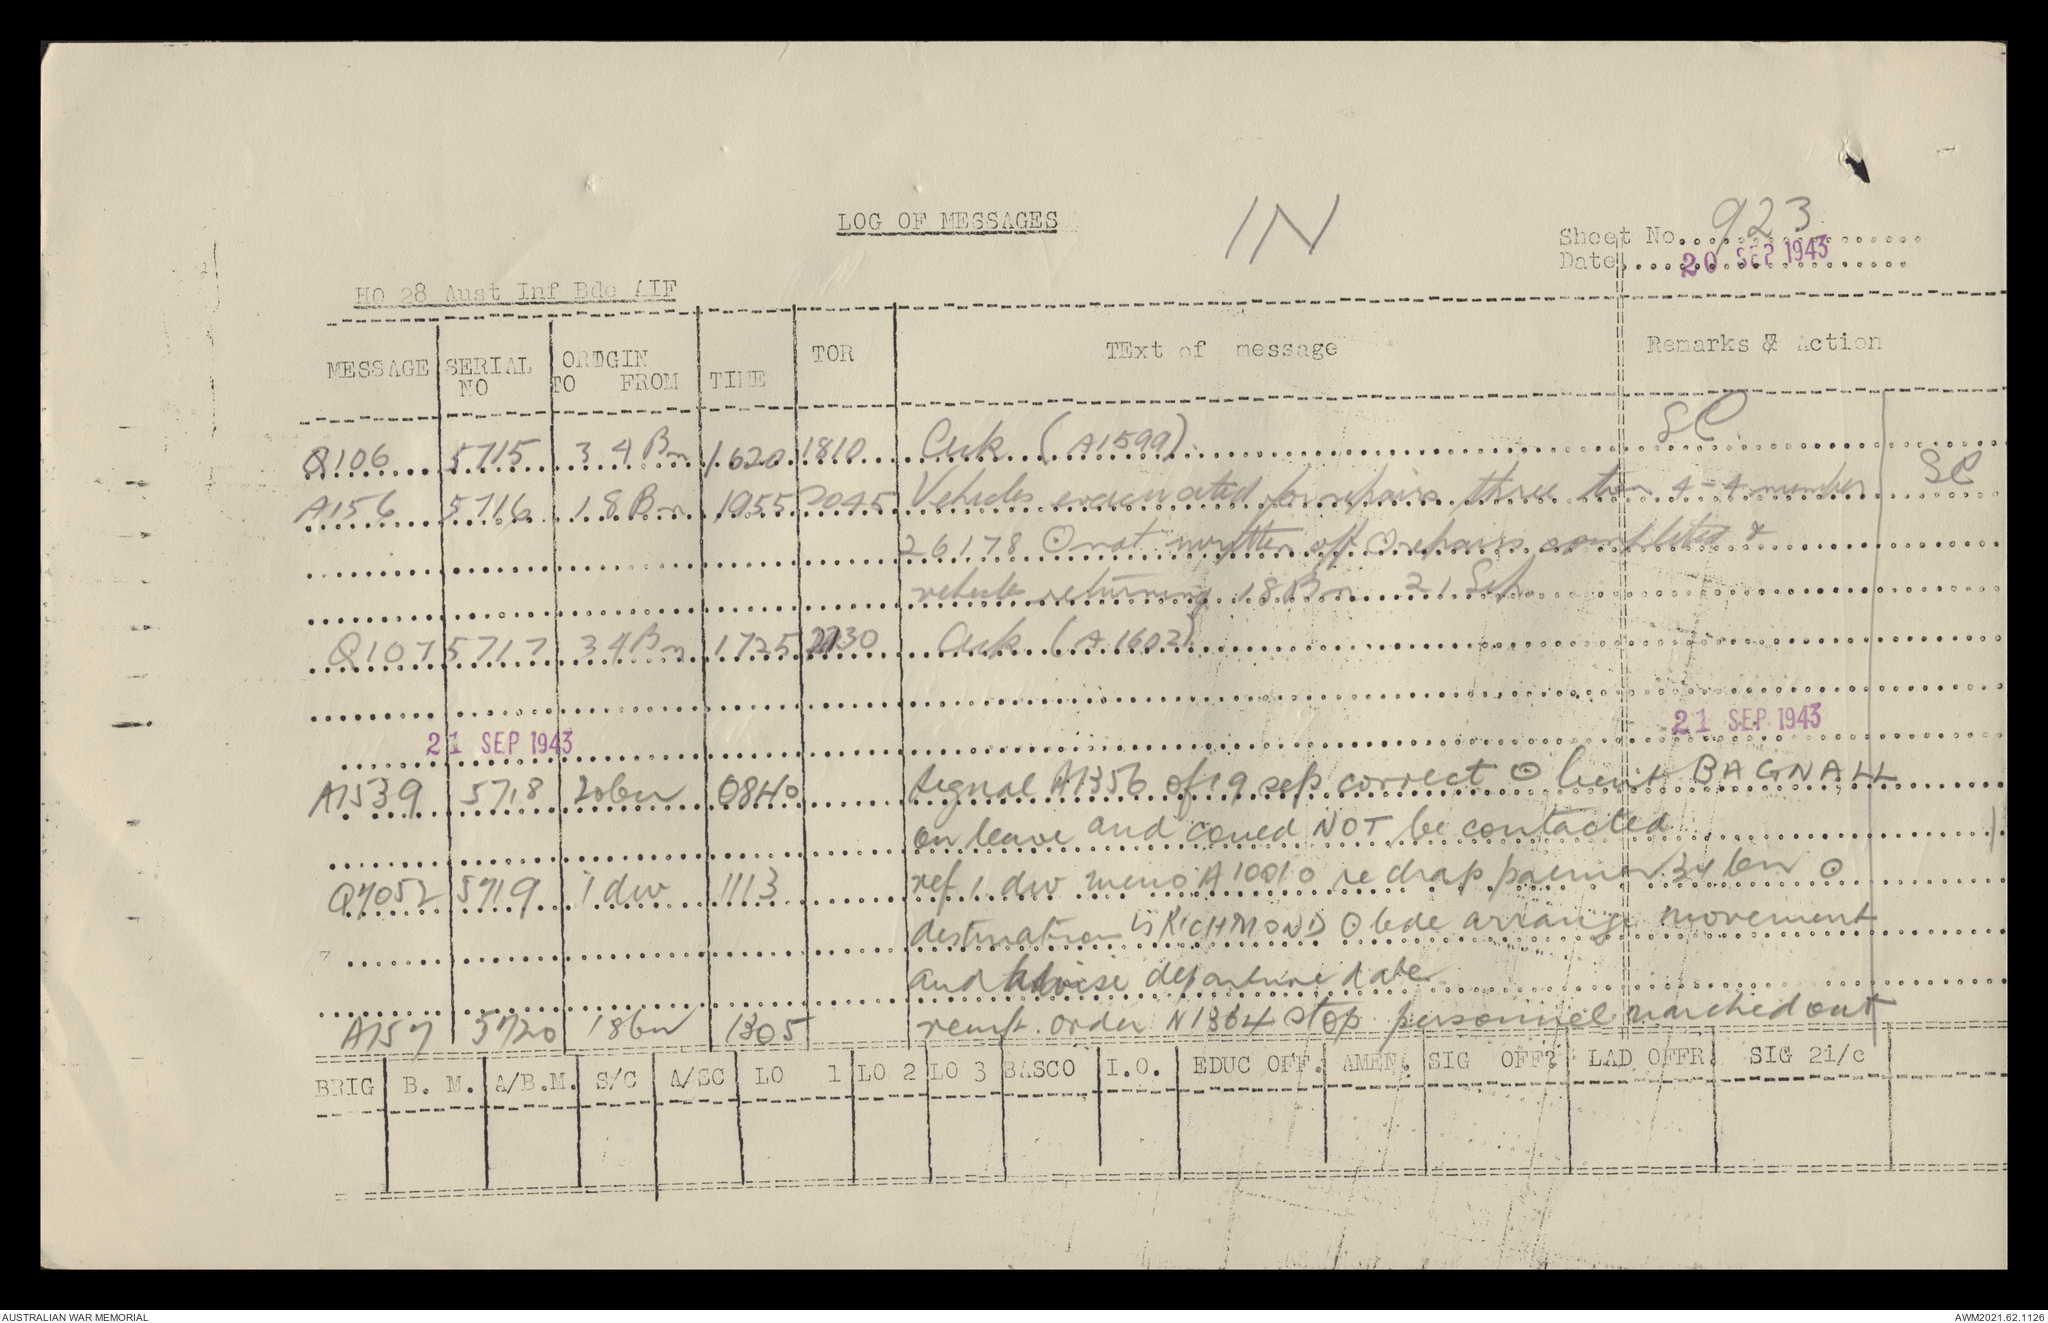 LOG OF MESSAGES
IN
Sheet No. 923
Date 20 SEP 1943
HQ 28 Aust Inf Bde AIF
MESSAGE SERIAL NO ORIGIN TO FROM TIME TOR TExt of message Remarks & Action
Q106 5715 34 Bn 1620 1810 Ack (A1599) SC
A156 5716 18 Bn 1955 2045 Vehicles evacuated for repairs three ton 4-4 number SC
26178 ⊙ not written off ⊙ repairs completed &
vehicle returning 18 Bn 21 Sep
Q107 5717 34 Bn 1725 2130 Ack (A1602)
21 SEP 1943 21 SEP 1943
A1539 5718 20 bn 0840 Signal A1356 of 19 sep correct ⊙ lieut BAGNALL
on leave and coued NOT be contacted
Q7052 5719 1 div 1113 ref 1 div memo A10010 re 34 bn ⊙
destination is RICHMOND ⊙ bde arrange movement
and advise departure date
A157 5720 18 bn 1305 reinft. order N1364 stop personnel marched out
BRIG B. M. A/B.M. S/C A/SC LO 1 LO 2 LO 3 BASCO I.O. EDUC OFF. AMEN. SIG OFF? LAD OFFR. SIG 2i/c
AUSTRALIAN WAR MEMORIAL
AWM2021.62.1126